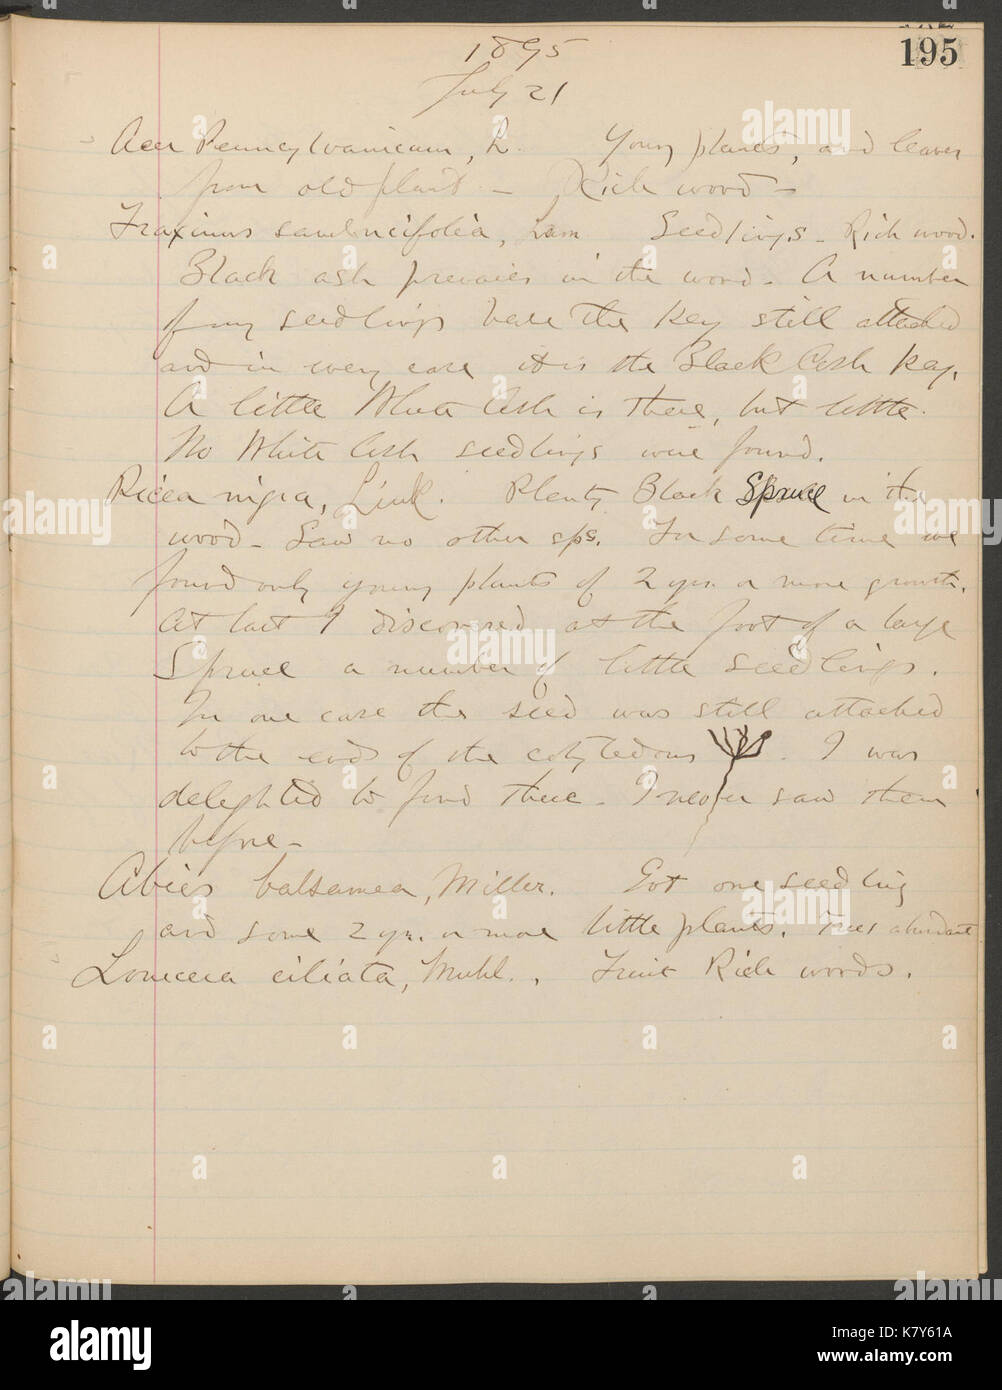 195
1895
July 21
Acer Pennsylvanicum, L. Young plants, and leaves
from old plant - Rich wood -
Fraxinus sambucifolia, Lam Seedlings - Rich wood.
Black ash prevails in the wood. A number
of my seedlings have the key still attached
and in every case it is the Black Ash key.
A little White Ash is there, but little.
No White Ash seedlings were found.
Picea nigra, Link. Plenty Black Spruce in the
wood - Saw no other sps. For some time we
found only young plants of 2 yrs. or more growth.
At last I discovered at the foot of a large
Spruce a number of little seedlings.
In one case the seed was still attached
to the ends of the cotyledons . I was
delighted to find these - I never saw them
before -
Abies balsamea, Miller. Got one seedling
and some 2 yr. or more little plants. Trees abundant
Lonicera ciliata, Muhl., Fruit Rich woods.
alamy
a
alamy
Image ID: K7Y61A
www.alamy.com